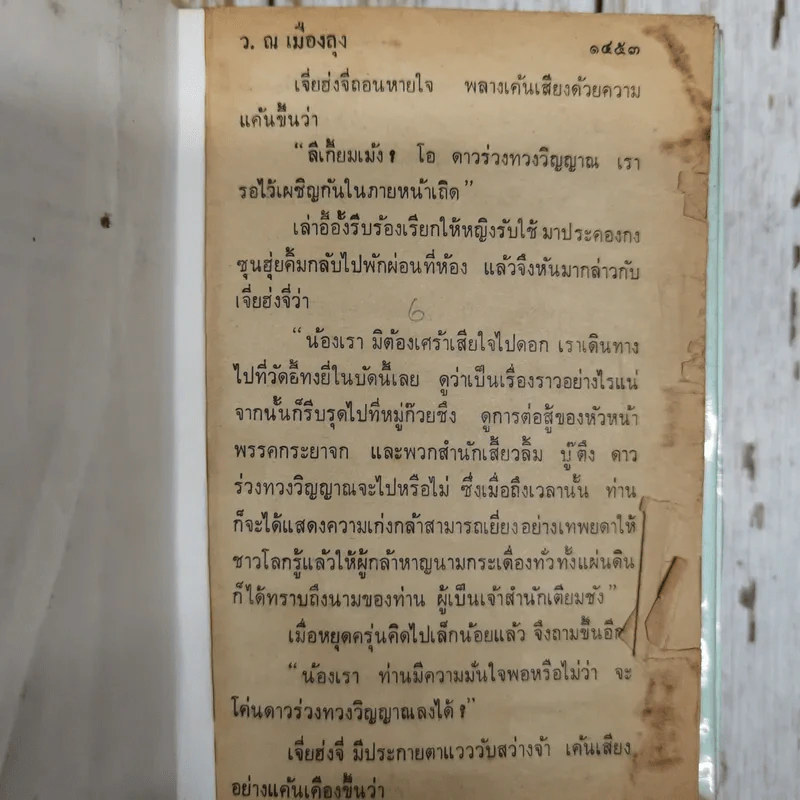 ว. ณ เมืองลุง ๑๔๕๓
เจี่ยฮ่งจี่ถอนหายใจ พลางเค้นเสียงด้วยความ
แค้นขึ้นว่า
“ลีเกี้ยมเม้ง ! โอ ดาวร่วงทวงวิญญาณ เรา
รอไว้เผชิญกันในภายหน้าเถิด”
เล่าอี้อั้งรีบร้องเรียกให้หญิงรับใช้ มาประคองกง
ซุนฮุ่ยคิ้มกลับไปพักผ่อนที่ห้อง แล้วจึงหันมากล่าวกับ
เจี่ยฮ่งจี่ว่า
6
“น้องเรา มิต้องเศร้าเสียใจไปดอก เราเดินทาง
ไปที่วัดอี้ทงยี่ในบัดนี้เลย ดูว่าเป็นเรื่องราวอย่างไรแน่
จากนั้นก็รีบรุดไปที่หมู่ก๊วยซึง ดูการต่อสู้ของหัวหน้า
พรรคกระยาจก และพวกสำนักเสี้ยวลิ้ม บู๊ตึง ดาว
ร่วงทวงวิญญาณจะไปหรือไม่ ซึ่งเมื่อถึงเวลานั้น ท่าน
ก็จะได้แสดงความเก่งกล้าสามารถเยี่ยงอย่างเทพยดาให้
ชาวโลกรู้แล้วให้ผู้กล้าหาญนามกระเดื่องทั่วทั้งแผ่นดิน
ก็ได้ทราบถึงนามของท่าน ผู้เป็นเจ้าสำนักเตียมชัง”
เมื่อหยุดครุ่นคิดไปเล็กน้อยแล้ว จึงถามขึ้นอีก
“น้องเรา ท่านมีความมั่นใจพอหรือไม่ว่า จะ
โค่นดาวร่วงทวงวิญญาณลงได้ !”
เจี่ยฮ่งจี่ มีประกายตาแวววับสว่างจ้า เค้นเสียง
อย่างแค้นเคืองขึ้นว่า